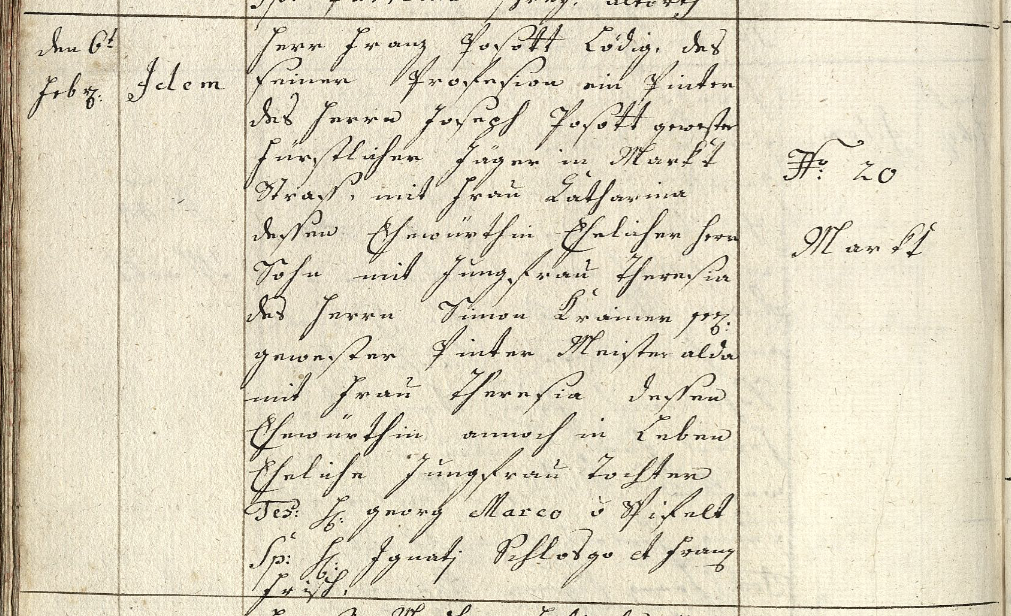 den 6t
Febr:
Idem
Herr Franz Posött Lödig, des
seiner Profesion ein Pinter
des Herrn Joseph Posött gewester
Fürstlicher Jäger in Markt
Straß, mit Frau Katharina
dessen Ehewürthin Ehelicher Herr
Sohn mit Jungfrau Theresia
des Herrn Simon Kramer
gewester Pinter Meister alda
mit Frau Theresia dessen
Ehewürthin annoch in Leben
Eheliche Jungfrau Tochter
Tes: H: georg Marco
Sp: H: Ignatj et Franz
Frisch.
No: 20
Markt